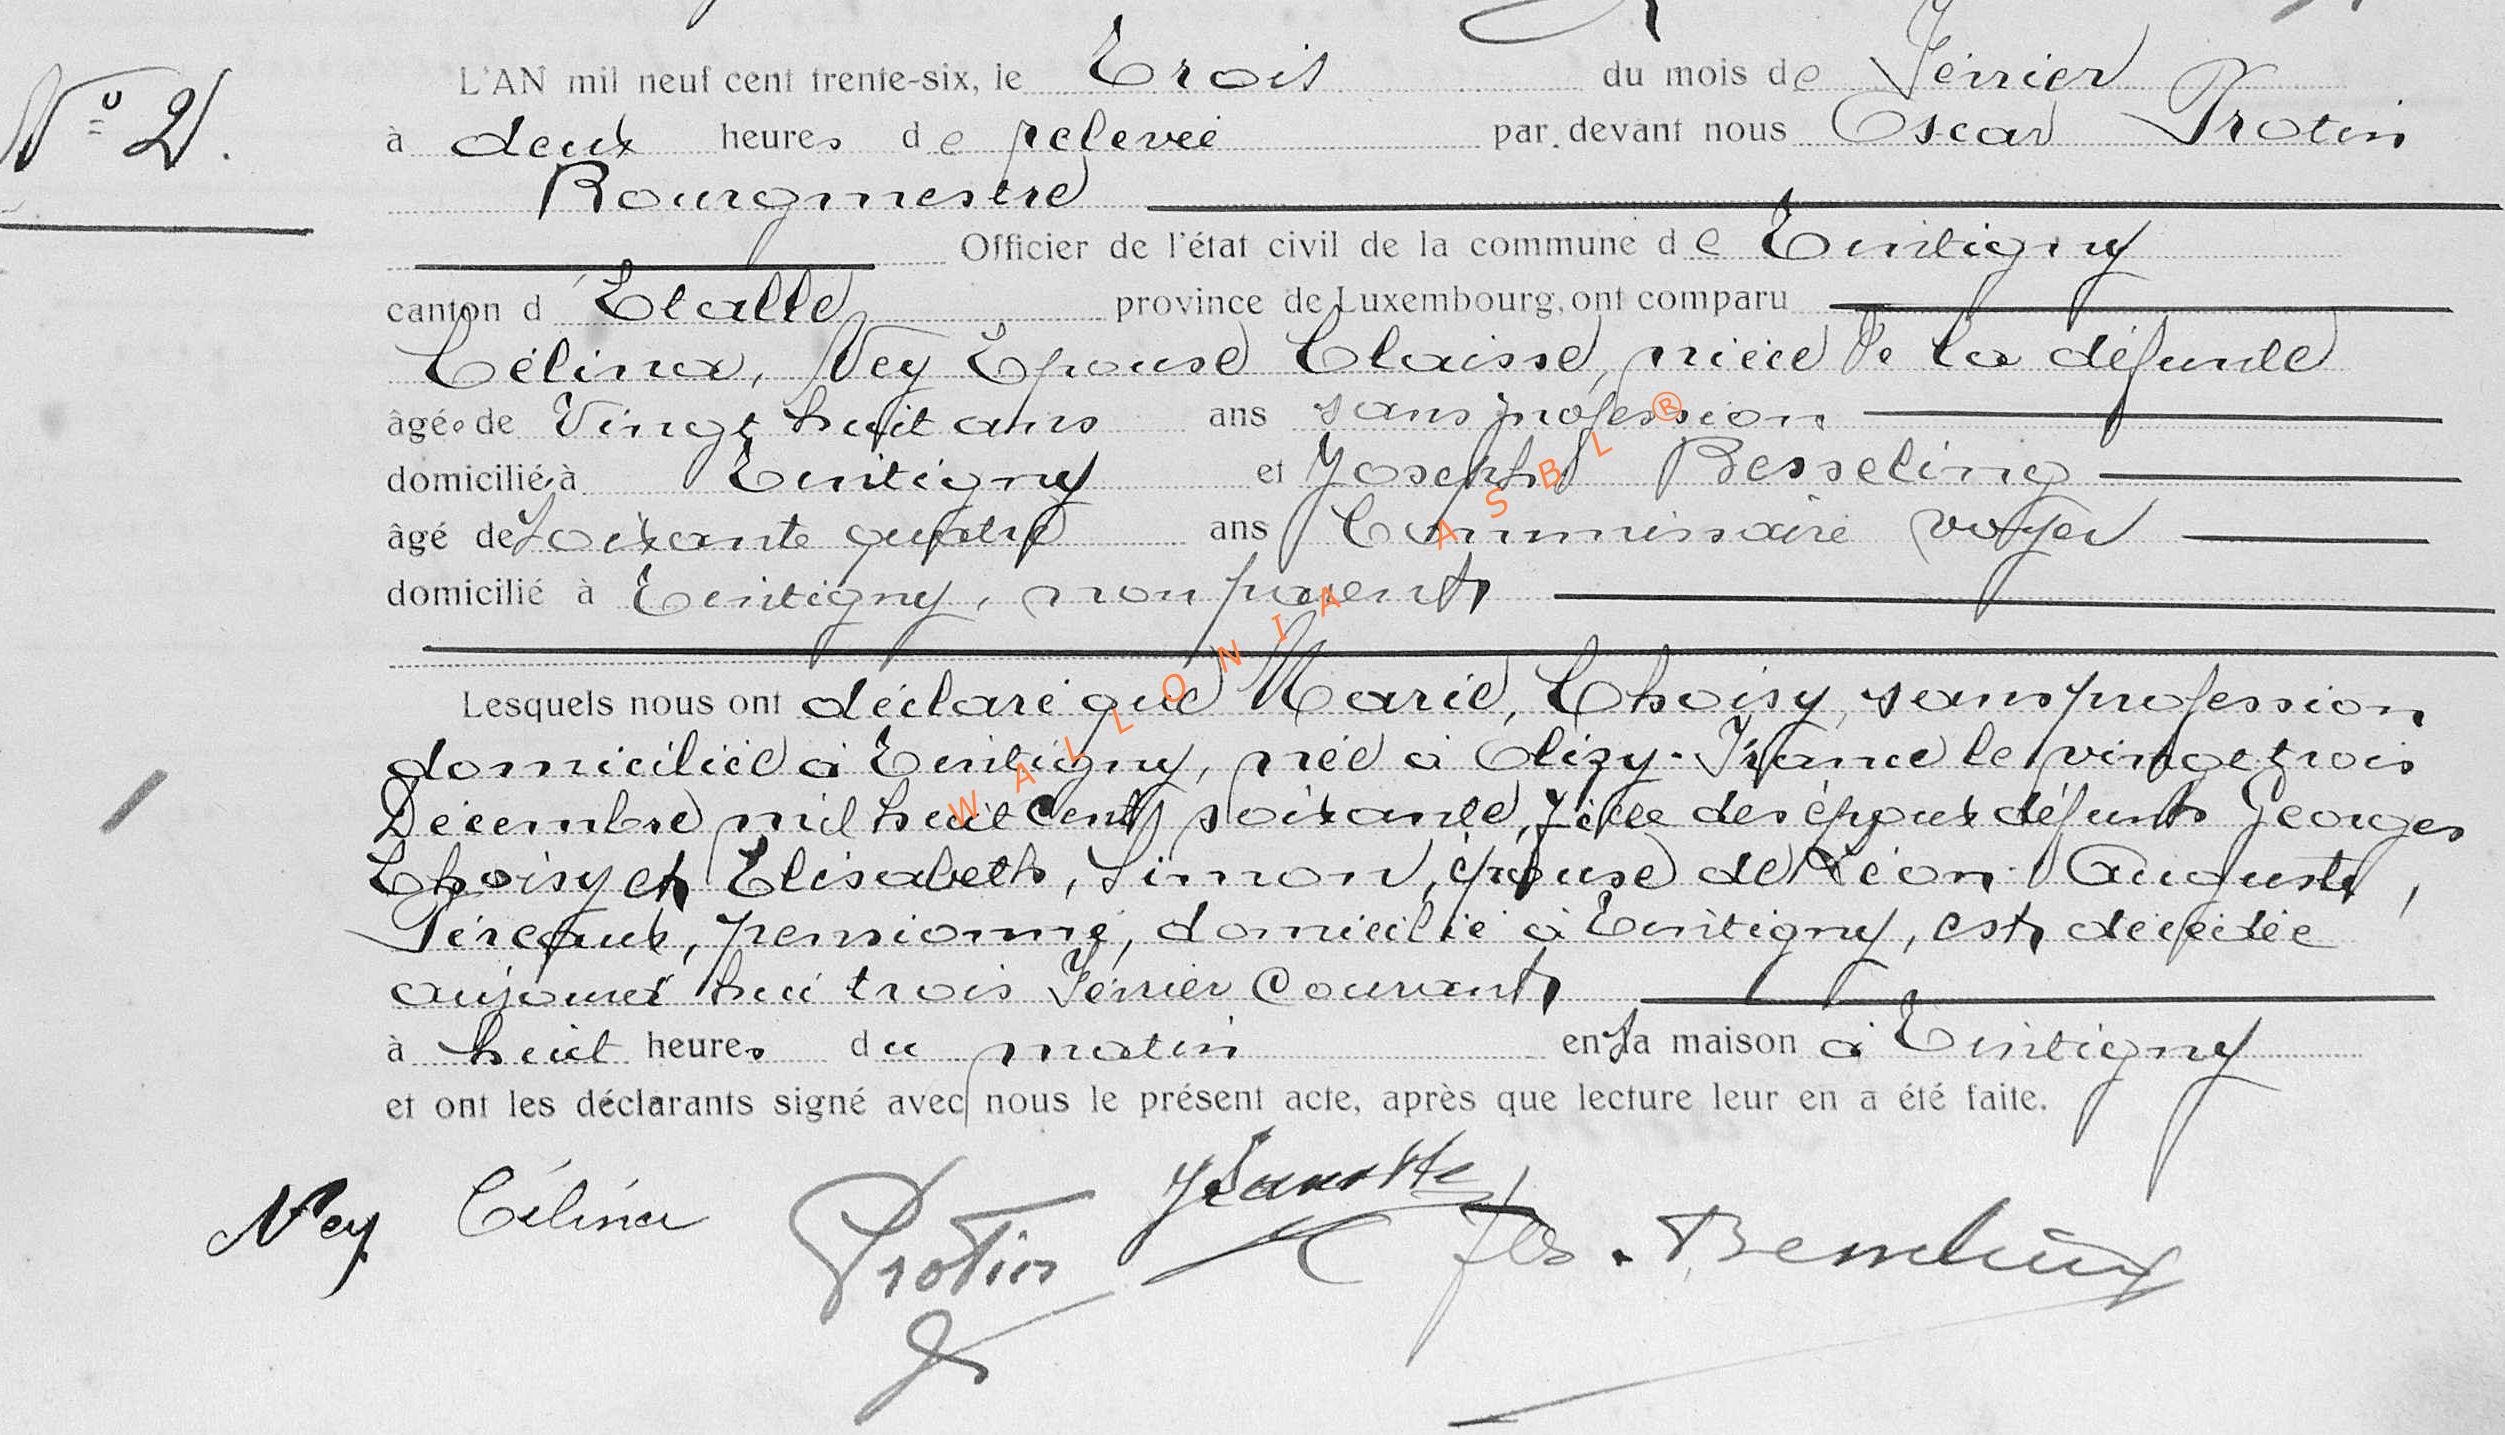 N° 2.
L'AN mil neuf cent trente-six, le Trois du mois de Février
à deux heures de relevée par devant nous Oscar Protin
Bourgmestre
Officier de l'état civil de la commune de Tintigny
canton d'Etalle province de Luxembourg, ont comparu
Célina, Ney Epouse Claisse, nièce de la défunte
âgée de Vingt huit ans ans sans profession
domiciliée à Tintigny et Joseph Besseling
âgé de Soixante quatre ans Commissaire voyer
domicilié à Tintigny, non parent
Lesquels nous ont déclaré que Marie, Choisy, sans profession
domiciliée à Tintigny, née à Olizy-France le vingt trois
Décembre mil huit cent soixante, fille des époux défunts Georges
Choisy et Elisabeth, Simon, épouse de Léon Auguste,
Pirçaux, pensionné, domicilié à Tintigny, est décédée
aujourd'hui trois Février Courant
à huit heures du matin en sa maison à Tintigny
et ont les déclarants signé avec nous le présent acte, après que lecture leur en a été faite.
Ney Célina Protin Jos. Besseling
WALLONIA ASBL ®